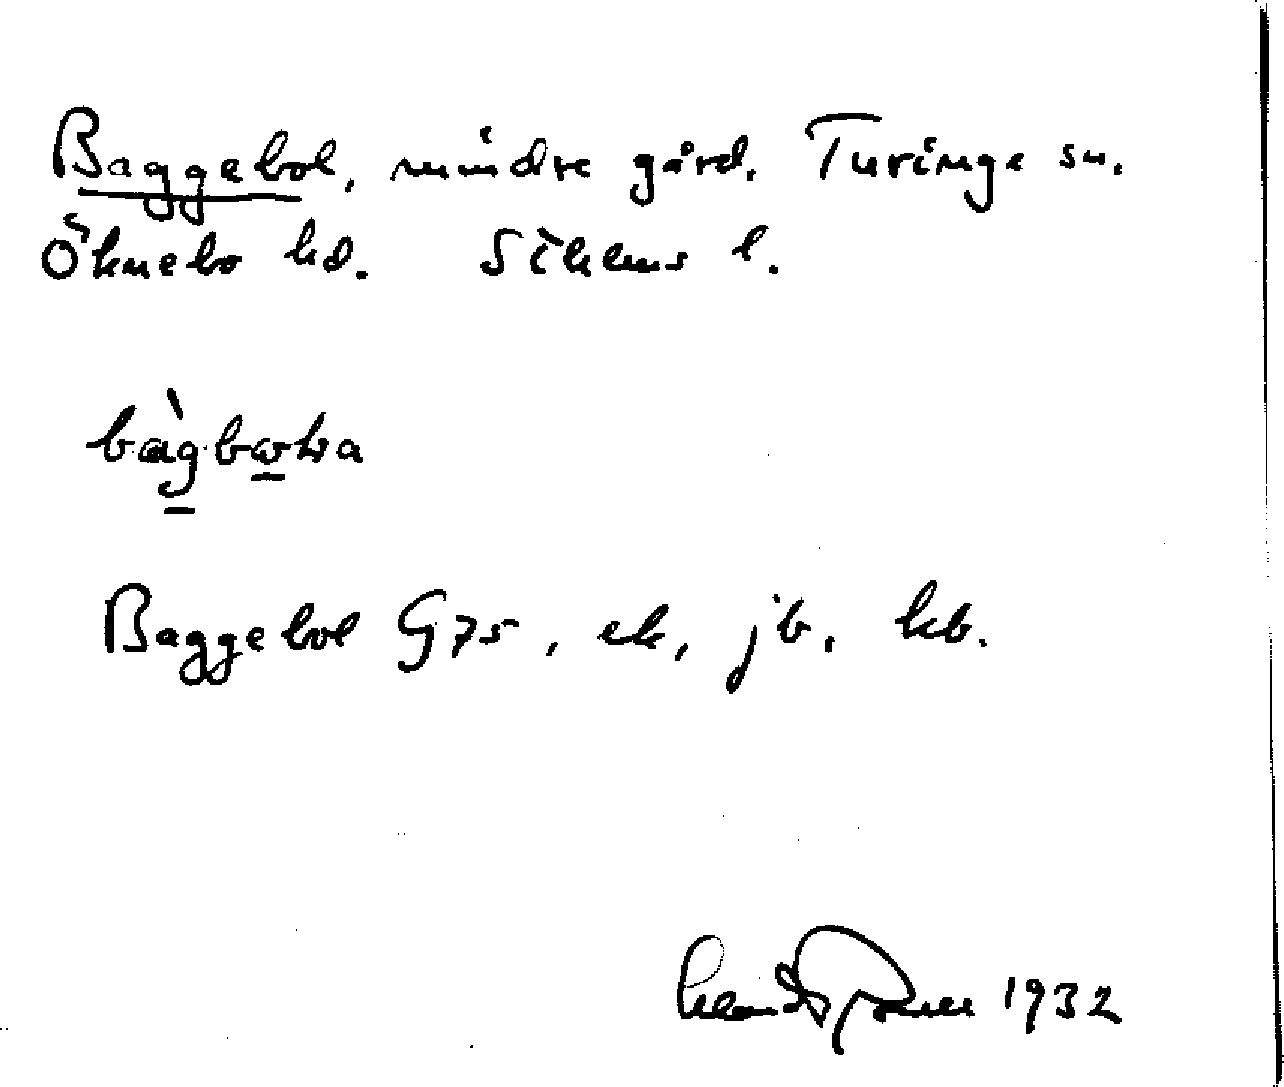 Baggebol, mindre gård, Turinge sn.
Öknebo hd. Sthlms l.
Baggebol G75, ek, jb, kb.
1932